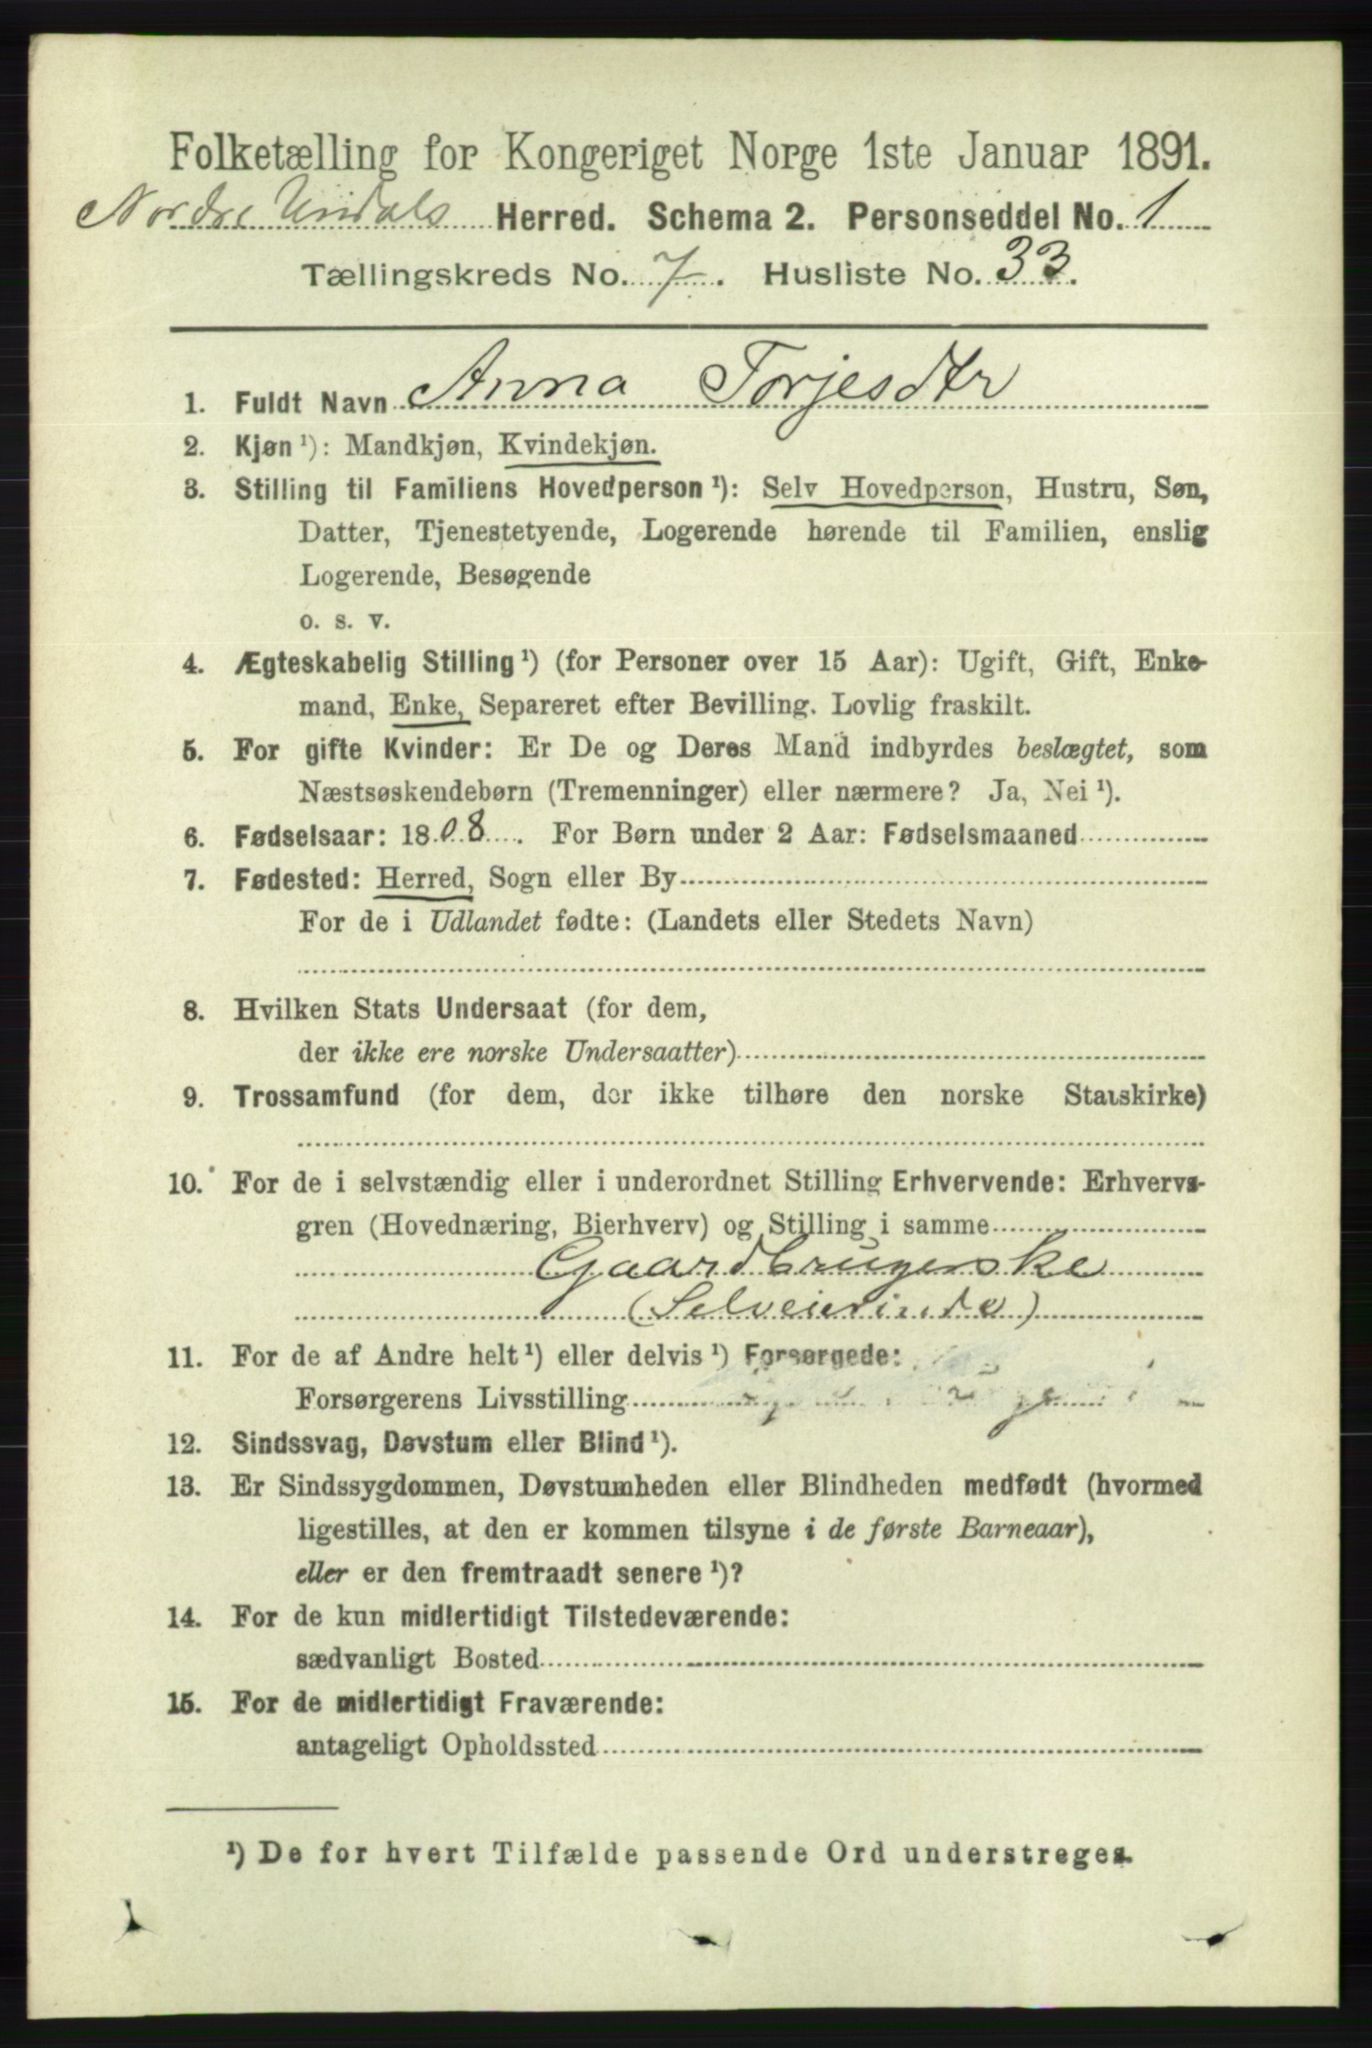 Folketælling for Kongeriget Norge 1ste Januar 1891.
Nordre Undals Herred. Schema 2. Personseddel No. 1
Tællingskreds No. 7. Husliste No. 33.
1. Fuldt Navn Anna Torjesdtr
2. Kjøn ¹): Mandkjøn, Kvindekjøn.
3. Stilling til Familiens Hovedperson ¹): Selv Hovedperson, Hustru, Søn,
Datter, Tjenestetyende, Logerende hørende til Familien, enslig
Logerende, Besøgende
o. s. v.
4. Ægteskabelig Stilling ¹) (for Personer over 15 Aar): Ugift, Gift, Enke-
mand, Enke, Separeret efter Bevilling. Lovlig fraskilt.
5. For gifte Kvinder: Er De og Deres Mand indbyrdes beslægtet, som
Næstsøskendebørn (Tremenninger) eller nærmere? Ja, Nei ¹).
6. Fødselsaar: 1808. For Børn under 2 Aar: Fødselsmaaned
7. Fødested: Herred, Sogn eller By
For de i Udlandet fødte: (Landets eller Stedets Navn)
8. Hvilken Stats Undersaat (for dem,
der ikke ere norske Undersaatter)
9. Trossamfund (for dem, der ikke tilhøre den norske Statskirke)
10. For de i selvstændig eller i underordnet Stilling Erhvervende: Erhvervs-
gren (Hovednæring, Bierhverv) og Stilling i samme
Gaardbrugerske
(Selveierinde)
11. For de af Andre helt ¹) eller delvis ¹) Forsørgede:
Forsørgerens Livsstilling
12. Sindssvag, Døvstum eller Blind ¹).
13. Er Sindssygdommen, Døvstumheden eller Blindheden medfødt (hvormed
ligestilles, at den er kommen tilsyne i de første Barneaar),
eller er den fremtraadt senere ¹)?
14. For de kun midlertidigt Tilstedeværende:
sædvanligt Bosted
15. For de midlertidigt Fraværende:
antageligt Opholdssted
¹) De for hvert Tilfælde passende Ord understreges.